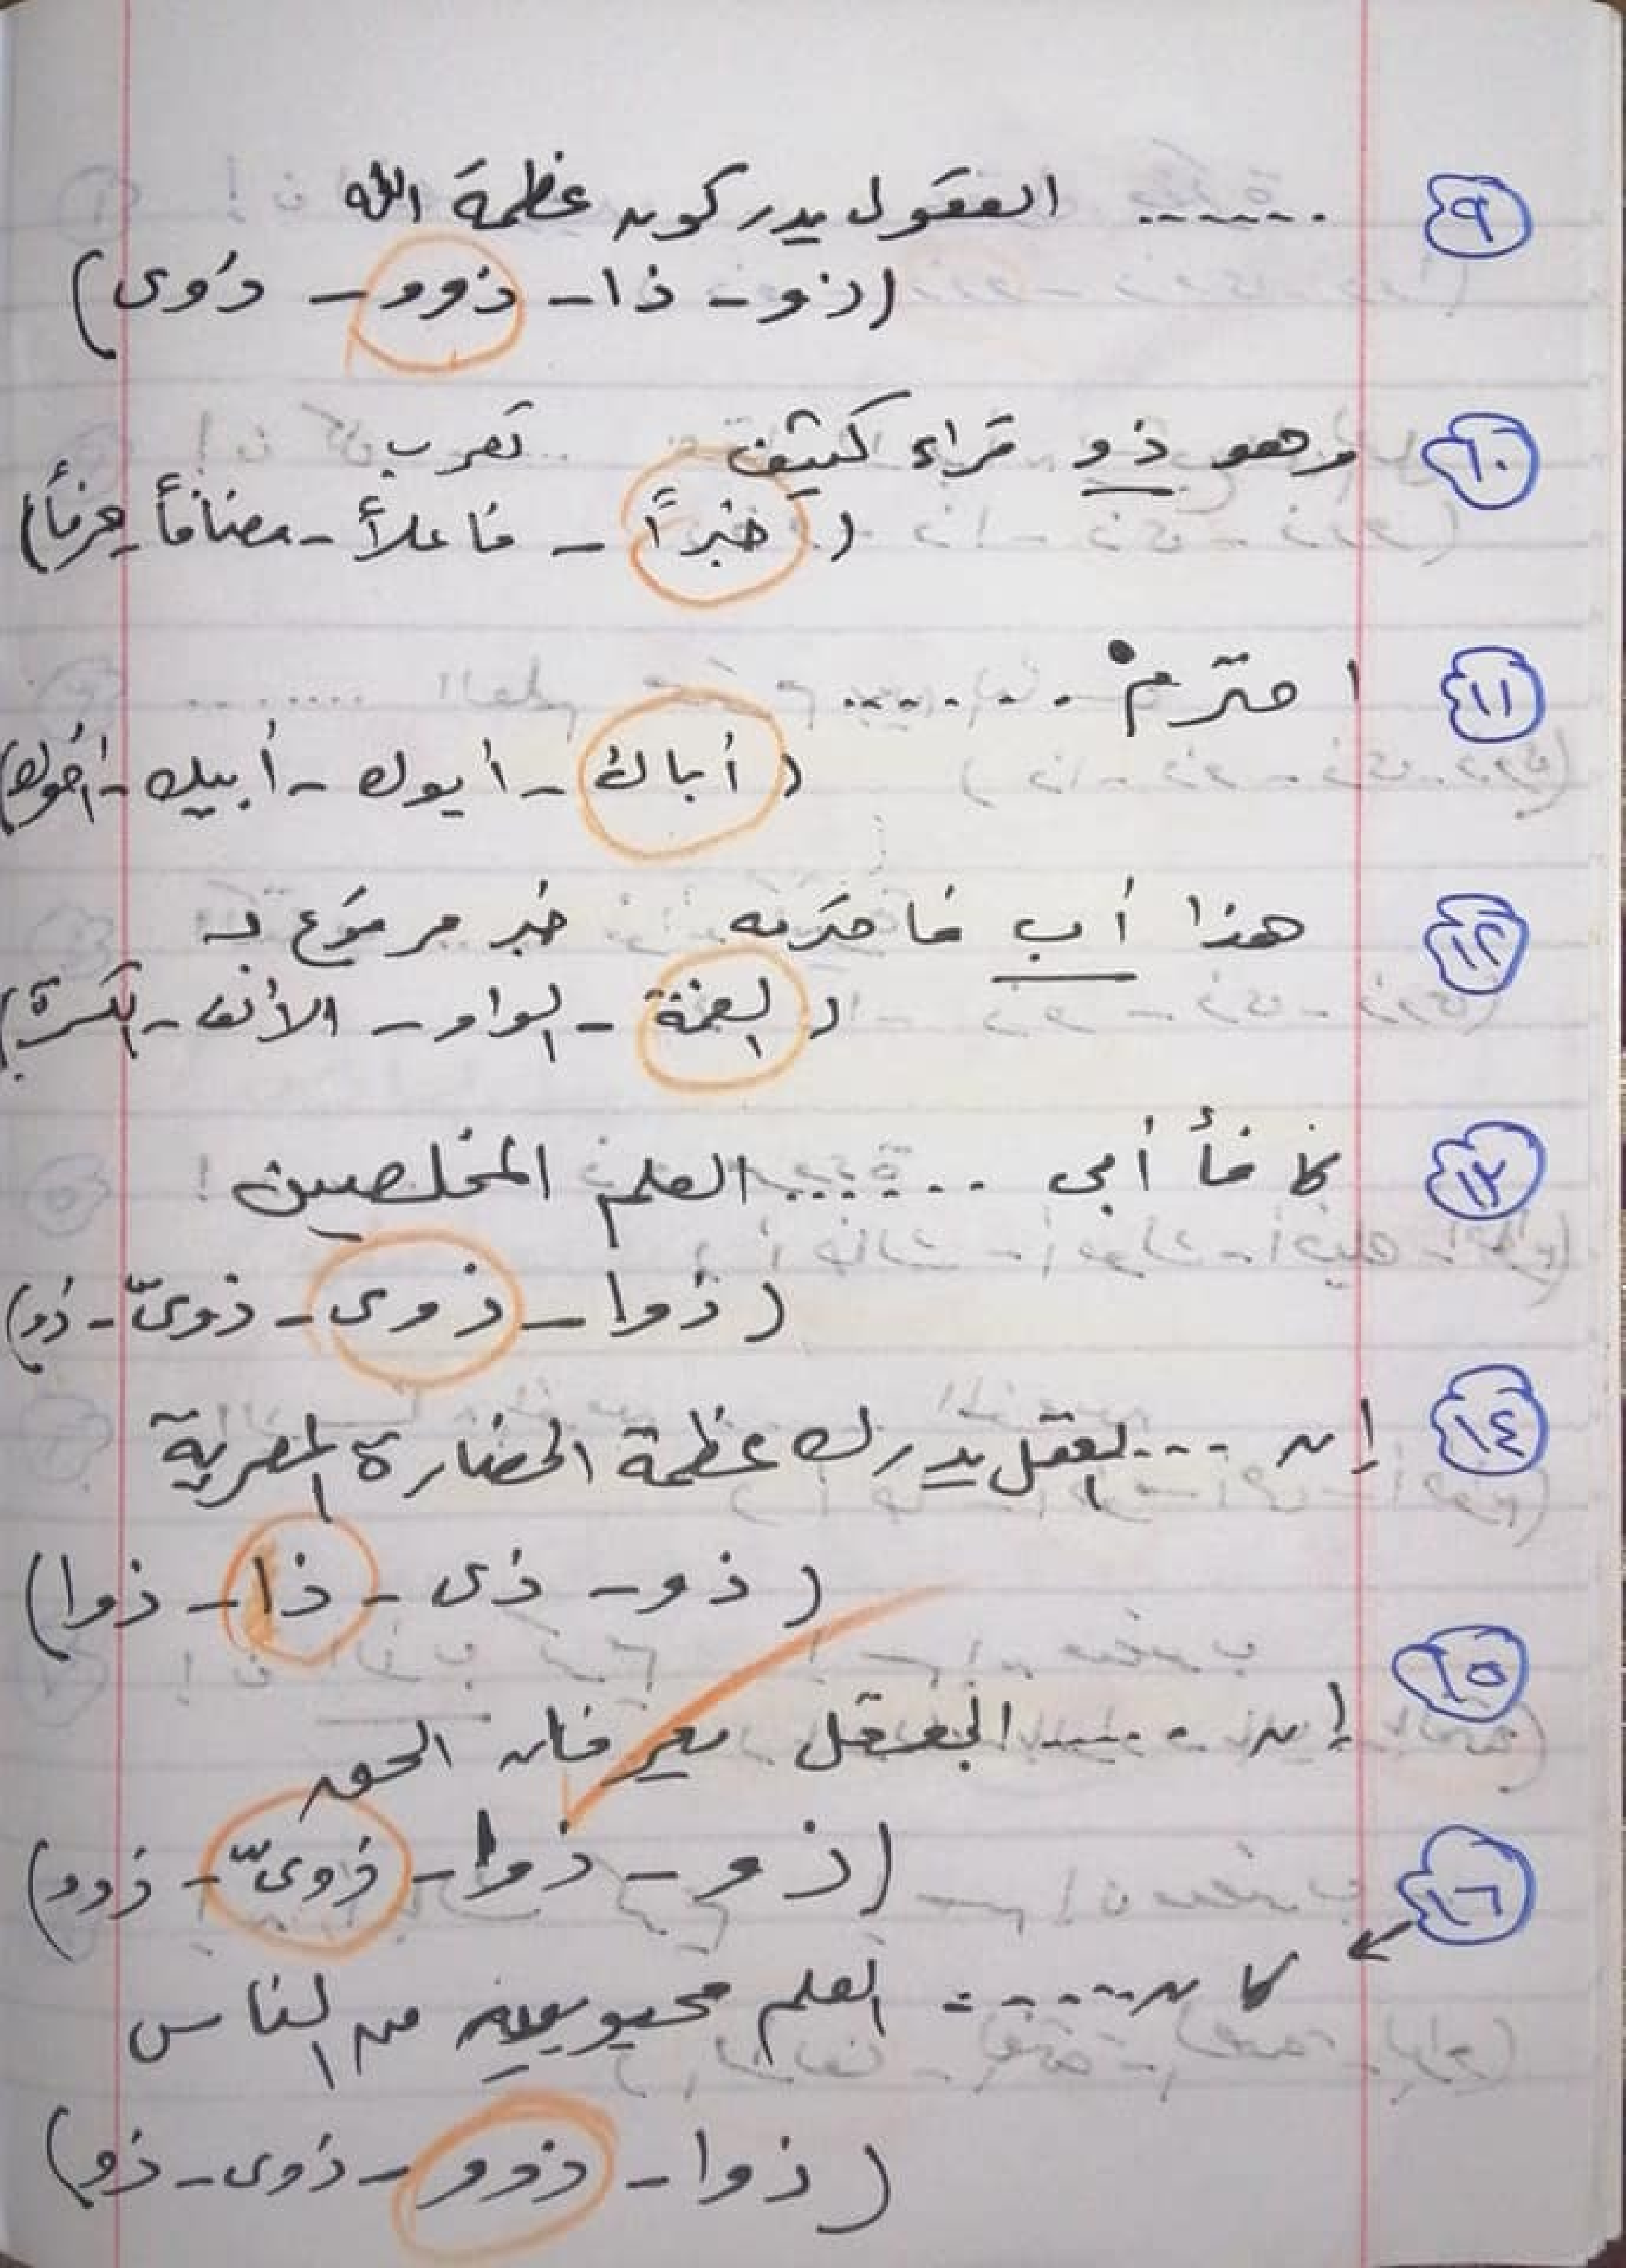 ٩ ....... العقول يدركون عظمة الله
(ذو - ذا - ذوو - ذوى)
١٠ وهو ذو فراء كثيف تعرب
(خبرًا - فاعلاً - مضافاً - حرفاً)
١١ احترمْ .......
(أباك - أبوك - أبيك - أخوك)
١٢ هذا أب فاحترمه خبر مرفوع بـ
(الضمة - الواو - الألف - الكسرة)
١٣ كافأ أبى ....... العلم المخلصين
(ذوا - ذوى - ذوىْ - ذو)
١٤ إن ... العقل يدرك عظمة الحضارة المصرية
(ذو - ذى - ذا - ذوا)
١٥ إن ...... العقل يعرفان الحق
(ذو - ذوا - ذوىْ - ذوو)
١٦ كان ....... العلم محبوبين من الناس
(ذوا - ذوو - ذوى - ذو)